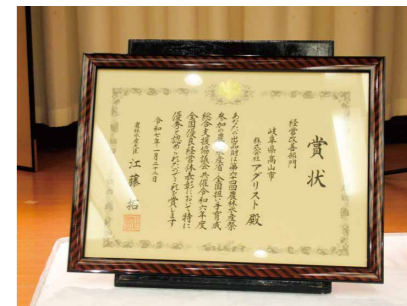 賞状
経営改善部門
岐阜県高山市
株式会社アグリスト殿
あなたの出品財は第六十四回農林水産祭
参加の農林水産省全国担い手育成
総合支援協議会共催令和六年度
全国優良経営体表彰において特に
優秀と認められたのでこれを賞します
令和七年一月二十八日
農林水産大臣 江藤拓